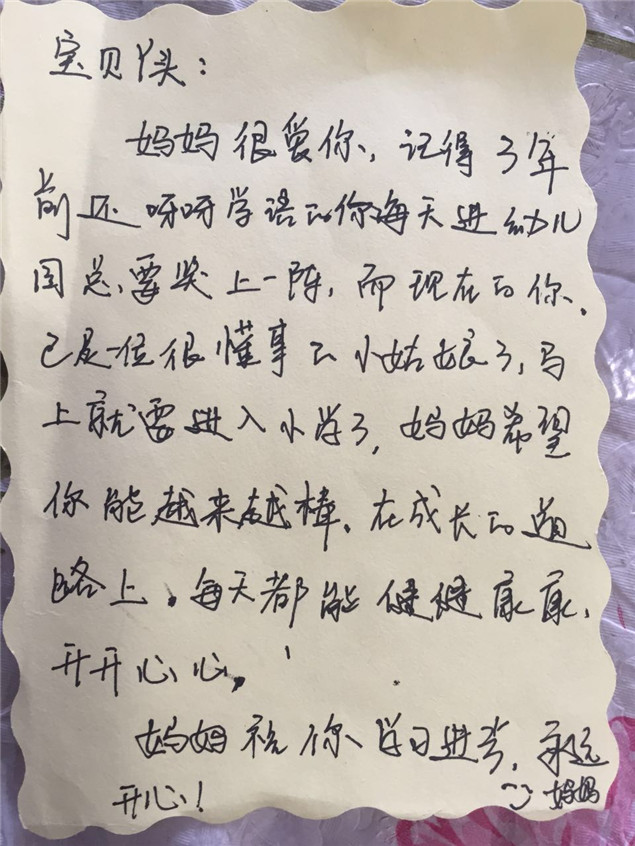 宝贝丫头：
妈妈很爱你，记得3年
前还呀呀学语的你每天进幼儿
园总要哭上一阵，而现在的你，
已是一位很懂事的小姑娘了，马
上就要进入小学了，妈妈希望
你能越来越棒，在成长的道
路上，每天都能健健康康，
开开心心。
妈妈祝你、学习进步，永远
开心！
妈妈